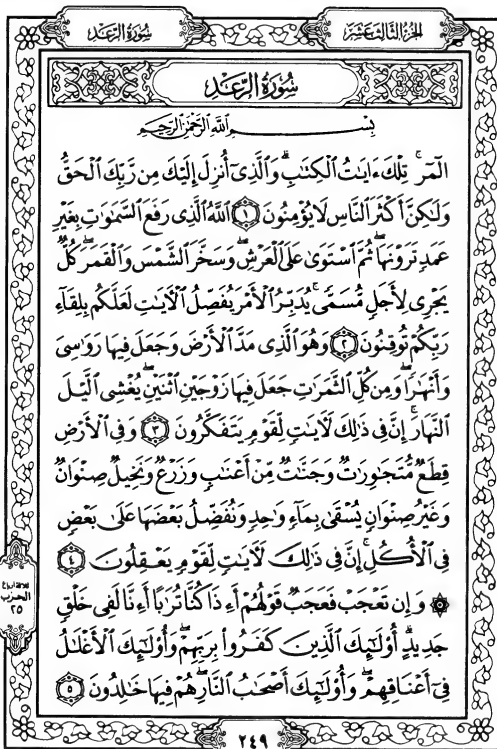 الجزء الثالث عشر
سورة الرعد
سُورَةُ الرَّعْدِ
بِسْمِ اللَّهِ الرَّحْمَٰنِ الرَّحِيمِ
الٓمٓر ۚ تِلْكَ ءَايَٰتُ الْكِتَٰبِ ۗ وَالَّذِىٓ أُنزِلَ إِلَيْكَ مِن رَّبِّكَ الْحَقُّ
وَلَٰكِنَّ أَكْثَرَ النَّاسِ لَا يُؤْمِنُونَ ١ اللَّهُ الَّذِى رَفَعَ السَّمَٰوَٰتِ بِغَيْرِ
عَمَدٍ تَرَوْنَهَا ۖ ثُمَّ اسْتَوَىٰ عَلَى الْعَرْشِ ۖ وَسَخَّرَ الشَّمْسَ وَالْقَمَرَ ۖ كُلٌّ
يَجْرِى لِأَجَلٍ مُّسَمًّى ۚ يُدَبِّرُ الْأَمْرَ يُفَصِّلُ الْءَايَٰتِ لَعَلَّكُم بِلِقَآءِ
رَبِّكُمْ تُوقِنُونَ ٢ وَهُوَ الَّذِى مَدَّ الْأَرْضَ وَجَعَلَ فِيهَا رَوَٰسِىَ
وَأَنْهَٰرًا ۖ وَمِن كُلِّ الثَّمَرَٰتِ جَعَلَ فِيهَا زَوْجَيْنِ اثْنَيْنِ ۖ يُغْشِى الَّيْلَ
النَّهَارَ ۚ إِنَّ فِى ذَٰلِكَ لَءَايَٰتٍ لِّقَوْمٍ يَتَفَكَّرُونَ ٣ وَفِى الْأَرْضِ
قِطَعٌ مُّتَجَٰوِرَٰتٌ وَجَنَّٰتٌ مِّنْ أَعْنَٰبٍ وَزَرْعٌ وَنَخِيلٌ صِنْوَانٌ
وَغَيْرُ صِنْوَانٍ يُسْقَىٰ بِمَآءٍ وَٰحِدٍ وَنُفَضِّلُ بَعْضَهَا عَلَىٰ بَعْضٍ
فِى الْأُكُلِ ۚ إِنَّ فِى ذَٰلِكَ لَءَايَٰتٍ لِّقَوْمٍ يَعْقِلُونَ ٤
۞ وَإِن تَعْجَبْ فَعَجَبٌ قَوْلُهُمْ أَءِذَا كُنَّا تُرَٰبًا أَءِنَّا لَفِى خَلْقٍ
جَدِيدٍ ۗ أُو۟لَٰٓئِكَ الَّذِينَ كَفَرُوا۟ بِرَبِّهِمْ ۖ وَأُو۟لَٰٓئِكَ الْأَغْلَٰلُ
فِىٓ أَعْنَاقِهِمْ ۖ وَأُو۟لَٰٓئِكَ أَصْحَٰبُ النَّارِ ۖ هُمْ فِيهَا خَٰلِدُونَ ٥
ثلاثة أرباع
الحزب
٢٥
٢٤٩